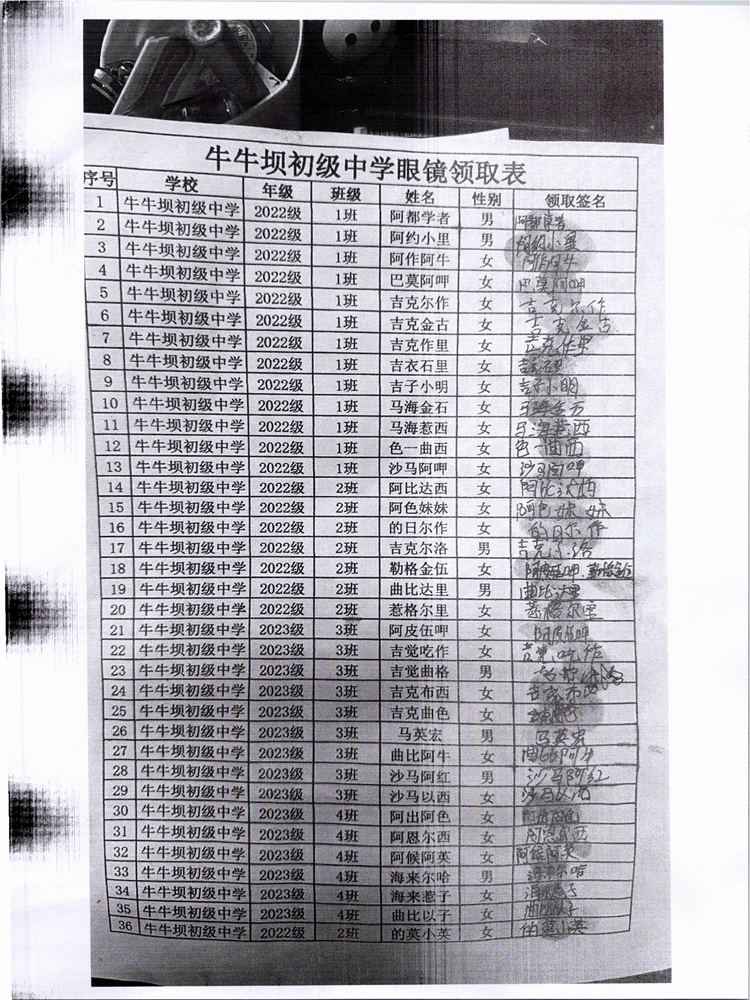 牛牛坝初级中学眼镜领取表
序号 学校 年级 班级 姓名 性别 领取签名
1 牛牛坝初级中学 2022级 1班 阿都学者 男
2 牛牛坝初级中学 2022级 1班 阿约小里 男 阿约小里
3 牛牛坝初级中学 2022级 1班 阿作阿牛 女 阿作阿牛
4 牛牛坝初级中学 2022级 1班 巴莫阿呷 女 巴莫阿呷
5 牛牛坝初级中学 2022级 1班 吉克尔作 女 吉克尔作
6 牛牛坝初级中学 2022级 1班 吉克金古 女 吉克金古
7 牛牛坝初级中学 2022级 1班 吉克作里 女 吉克作里
8 牛牛坝初级中学 2022级 1班 吉衣石里 女
9 牛牛坝初级中学 2022级 1班 吉子小明 女 吉子小明
10 牛牛坝初级中学 2022级 1班 马海金石 女 马海金石
11 牛牛坝初级中学 2022级 1班 马海惹西 女 马海惹西
12 牛牛坝初级中学 2022级 1班 色一曲西 女 色一曲西
13 牛牛坝初级中学 2022级 1班 沙马阿呷 女 沙马阿呷
14 牛牛坝初级中学 2022级 2班 阿比达西 女 阿比达
15 牛牛坝初级中学 2022级 2班 阿色妹妹 女 阿色妹妹
16 牛牛坝初级中学 2022级 2班 的日尔作 女 的日尔作
17 牛牛坝初级中学 2022级 2班 吉克尔洛 男 吉克尔洛
18 牛牛坝初级中学 2022级 2班 勒格金伍 女
19 牛牛坝初级中学 2022级 2班 曲比达里 男 曲比达里
20 牛牛坝初级中学 2022级 2班 惹格尔里 女 惹格尔里
21 牛牛坝初级中学 2023级 3班 阿皮伍呷 女 阿皮伍呷
22 牛牛坝初级中学 2023级 3班 吉觉吃作 女 吉觉吃作
23 牛牛坝初级中学 2023级 3班 吉觉曲格 男
24 牛牛坝初级中学 2023级 3班 吉克布西 女 吉克布西
25 牛牛坝初级中学 2023级 3班 吉克曲色 女
26 牛牛坝初级中学 2023级 3班 马英宏 男 马英宏
27 牛牛坝初级中学 2023级 3班 曲比阿牛 女 曲比阿牛
28 牛牛坝初级中学 2023级 3班 沙马阿红 男 沙马阿红
29 牛牛坝初级中学 2023级 3班 沙马以西 女 沙马以西
30 牛牛坝初级中学 2023级 4班 阿出阿色 女
31 牛牛坝初级中学 2023级 4班 阿恩尔西 女 阿恩尔西
32 牛牛坝初级中学 2023级 4班 阿候阿英 女 阿候阿英
33 牛牛坝初级中学 2023级 4班 海来尔哈 男 海来尔哈
34 牛牛坝初级中学 2023级 4班 海来惹子 女
35 牛牛坝初级中学 2023级 4班 曲比以子 女
36 牛牛坝初级中学 2022级 2班 的莫小英 女 的莫小英